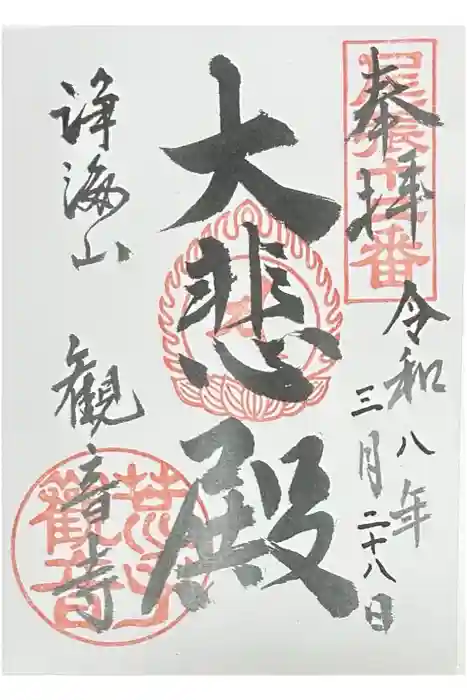 奉拝
令和八年
三月二十八日
大悲殿
淨海山 観音寺
荒子
觀音